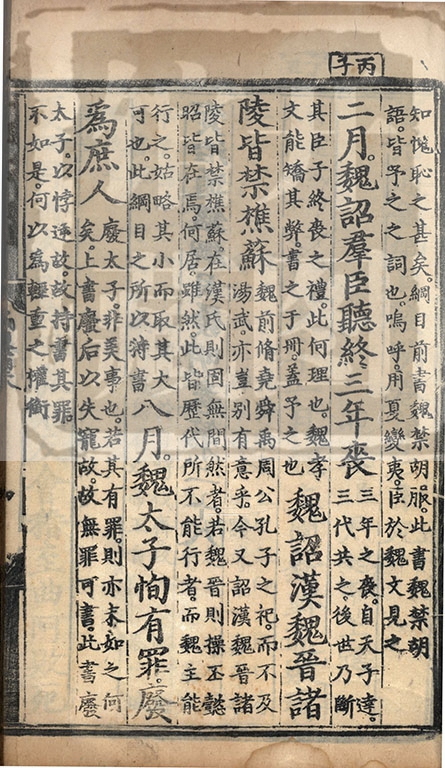 丙子
知愧恥之甚矣。綱目前書魏禁胡服。此書魏禁胡
語。皆予之之詞也。嗚呼。用夏變夷。臣於魏文見之
二月。魏詔羣臣聽終三年喪
三年之喪。自天子達。
三代共之。後世乃斷
其臣子終喪之禮。此何理也。魏孝
文能矯其弊。書之于冊。蓋予之也
魏詔漢魏晉諸
陵皆禁樵蘇
魏前脩堯舜禹周公孔子之祀而不及
湯武。亦豈別有意乎。今又詔漢魏晉諸
陵皆禁樵蘇在漢氏則固無間然者。若魏晉則操丕懿
昭皆在焉。何居。雖然。此皆歷代所不能行者而魏主能
行之。姑略其小而取其大
可也。此綱目之所以薄書
八月。魏太子恂有罪。廢
爲庶人
廢太子。非美事也。若其有罪。則亦末如之何
矣。上書廢后以失寵故。故無罪可書。此書廢
太子。以悖逆故。故持書其罪。
不如是。何以爲輕重之權衡